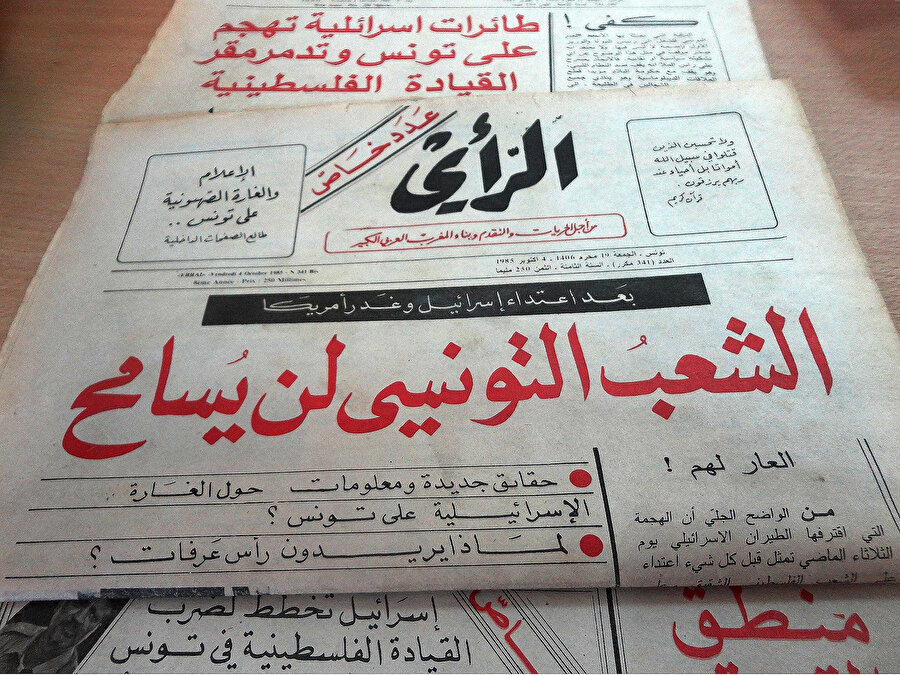 طائرات اسرائلية تهجم
على تونس وتدمر مقر
القيادة الفلسطينية
كفى !
عدد خاص
الرأي
من أجل الحريات والتقدم وبناء المغرب العربي الكبير
ولا تحسبن الذين
قتلوا في سبيل الله
أمواتا بل أحياء عند
ربهم يرزقون.
قرآن كريم
الإعلام
والغارة الصهيونية
على تونس ..
طالع الصفحات الداخلية
تونس، الجمعة 19 محرم 1406 ـ 4 أكتوبر 1985
العدد (341 مكرر) . السنة الثامنة . الثمن 250 مليما
«ERRAI» -Vendredi 4 Octobre 1985 - N 341 Bis
8eme Année - Prix : 250 Millimes
بعد اعتداء إسرائيل وغدر أمريكا
الشعبُ التونسي لن يُسامح
حقائق جديدة ومعلومات حول الغارة ..
الإسرائيلية على تونس ؟
لماذا يريدون رأس عرفات ؟
العار لهم !
من الواضح الجلي أن الهجمة
التي اقترفها الطيران الاسرائيلي يوم
الثلاثاء الماضي تمثل قبل كل شيء اعتداء
على الشعب الفلسطيني
إسرائيل تخطط لضرب
القيادة الفلسطينية في تونس
منطق